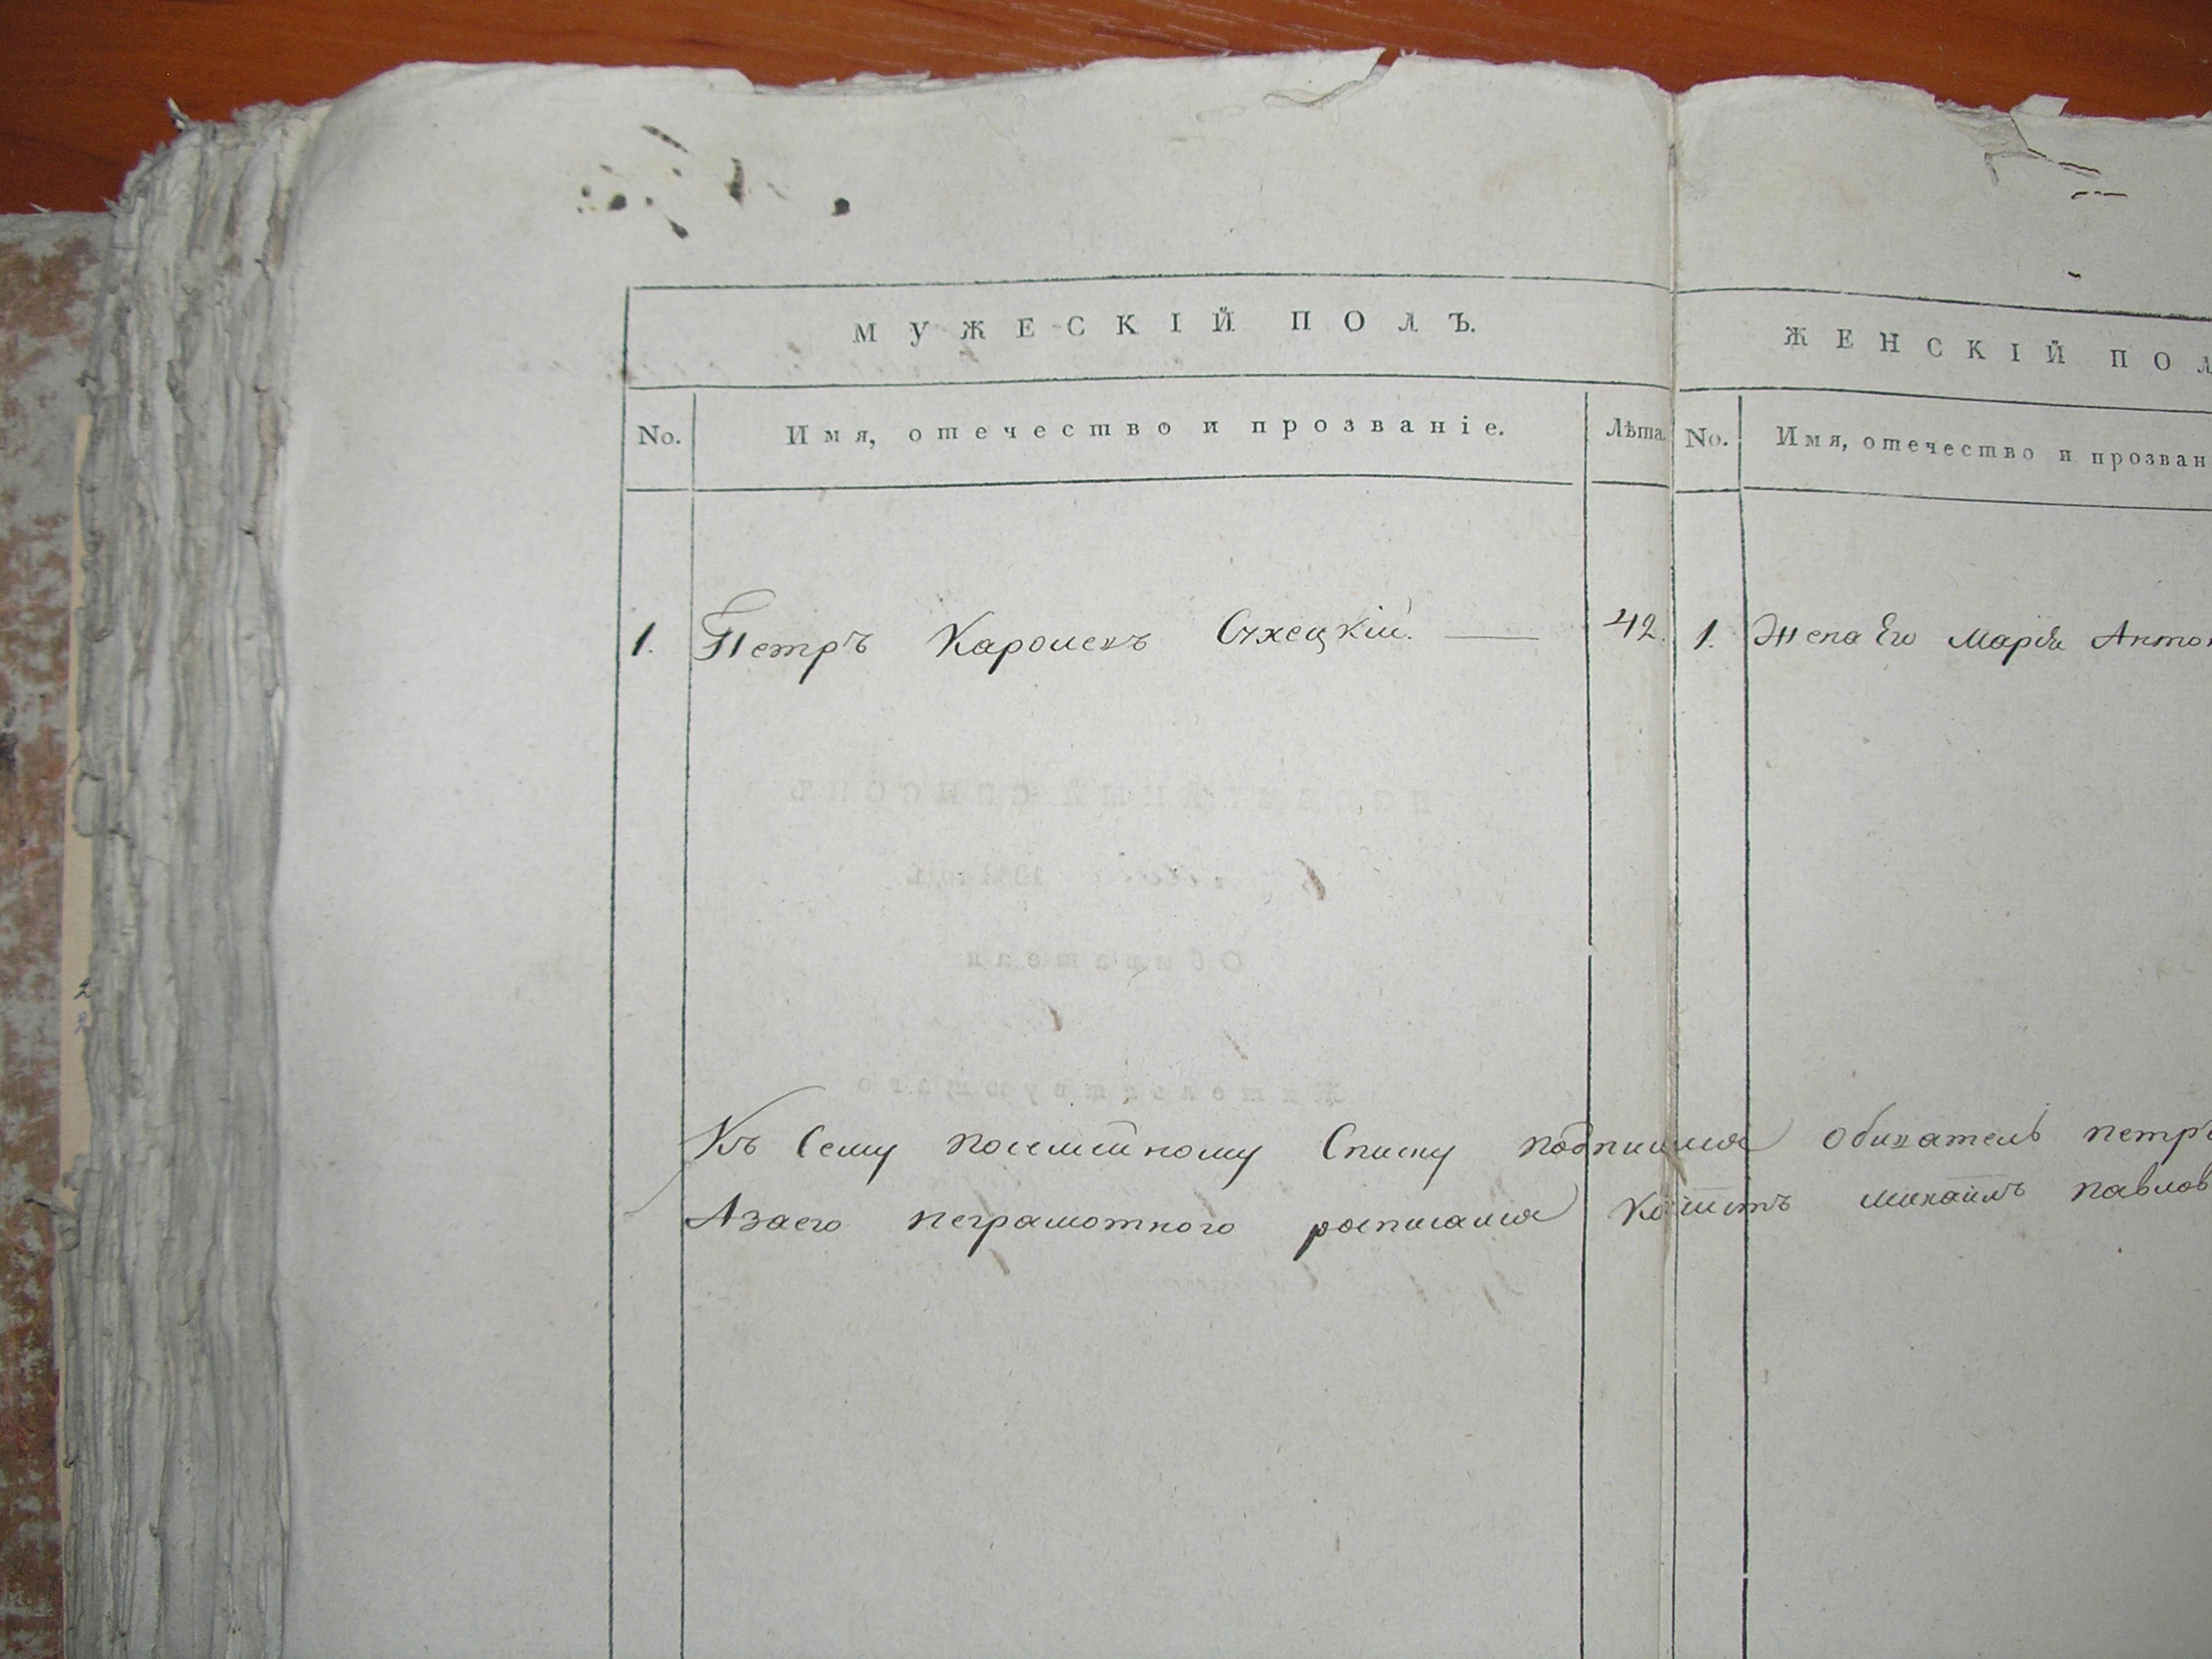 МУЖЕСКІЙ ПОЛЪ.
ЖЕНСКІЙ ПОЛ
No. Имя, отечество и прозваніе. Лѣта. No. Имя, отечество и прозван
1. Петръ 42. 1. Жена Его Марія Антон
Къ Сему посемейному Списку подписался обыватель петръ
Азаего неграмотного росписался михаилъ павлов